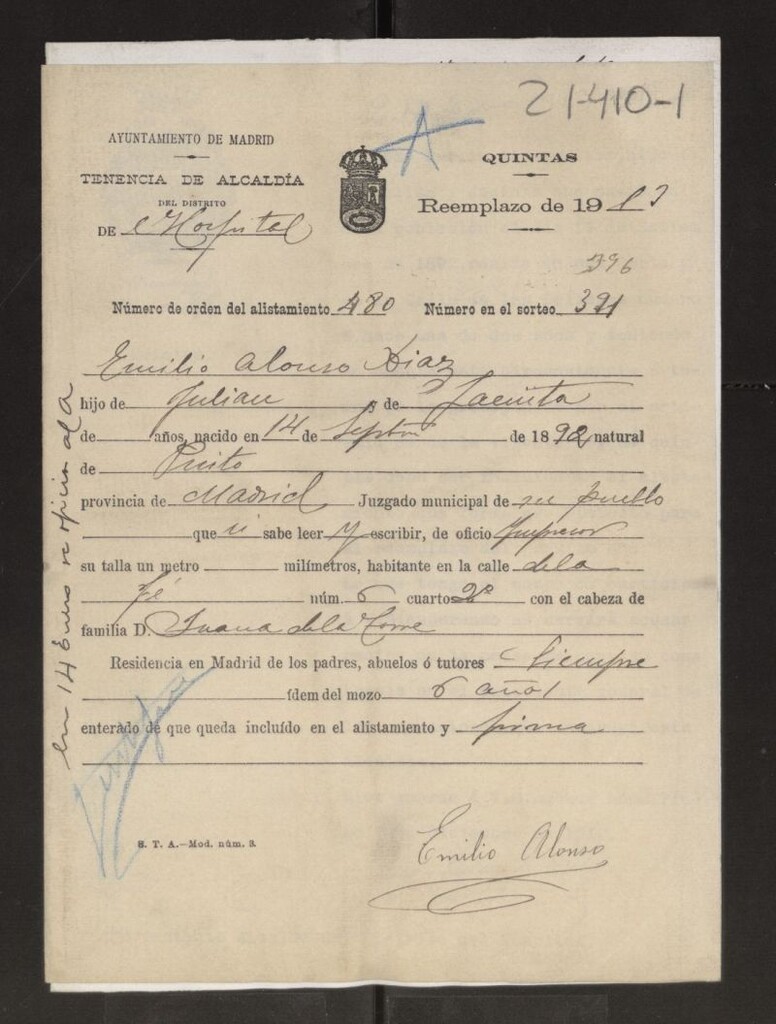 21-410-1
A
AYUNTAMIENTO DE MADRID
TENENCIA DE ALCALDÍA
DEL DISTRITO
DE Hospital
QUINTAS
Reemplazo de 1913
396
Número de orden del alistamiento 480 Número en el sorteo 391
Emilio Alonso Diaz
hijo de Julian y de Jacinta
de años, nacido en 14 de Septre de 1892 natural
de Pinto
provincia de Madrid Juzgado municipal de su pueblo
que si sabe leer y escribir, de oficio Impresor
su talla un metro milímetros, habitante en la calle de la
Fé núm. 6 cuarto 2º con el cabeza de
familia D. Juana de la Torre
Residencia en Madrid de los padres, abuelos ó tutores Siempre
ídem del mozo 6 años
enterado de que queda incluído en el alistamiento y firma
S. T. A.—Mod. núm. 3.
Emilio Alonso
en 14 Enero se oficia al A